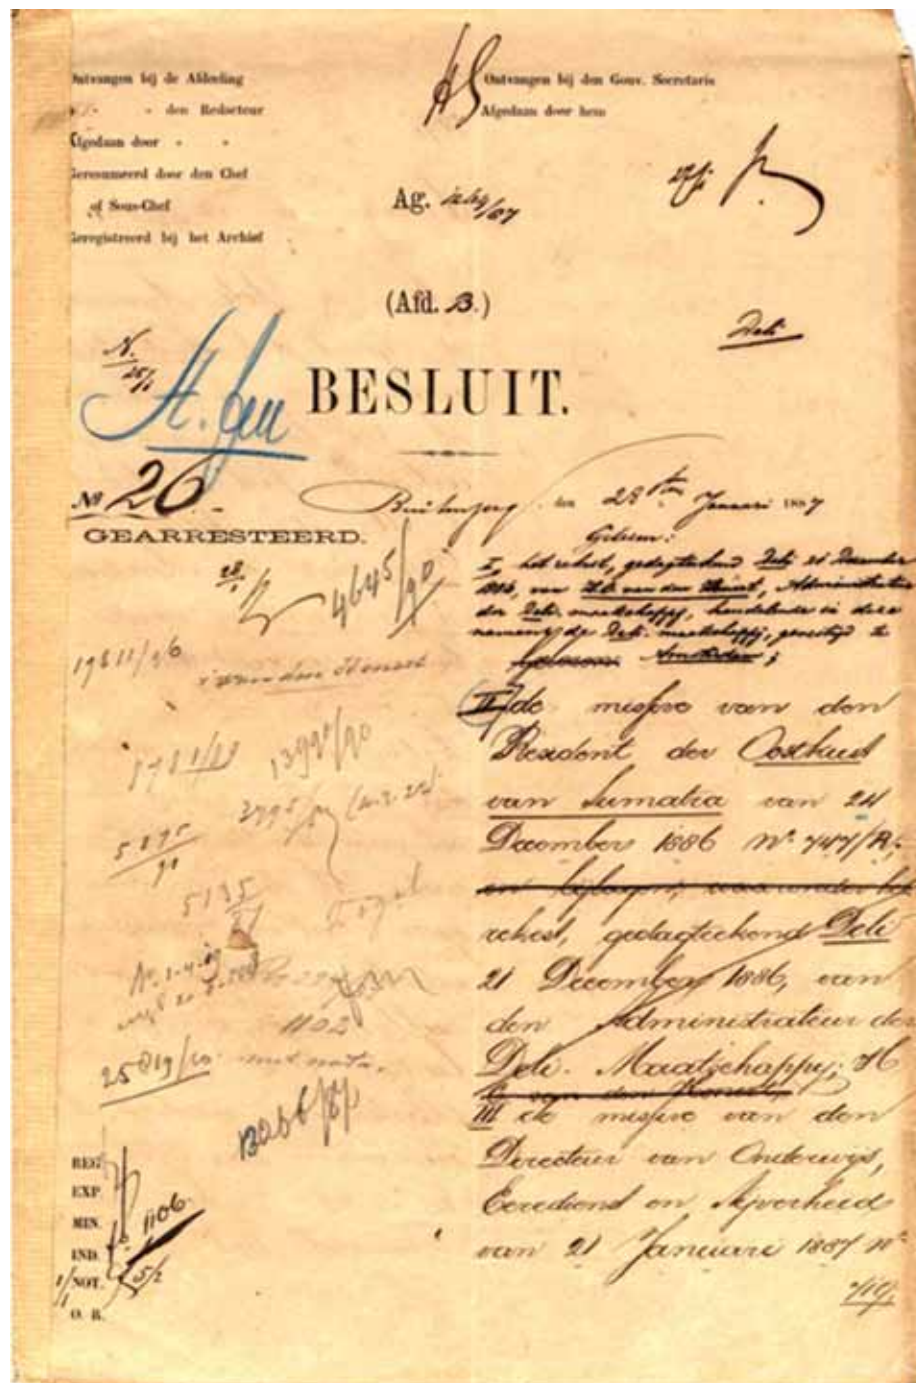 Ontvangen bij de Afdeeling
" " den Redacteur
Afgedaan door " "
Geresumeerd door den Chef
of Sous-Chef
Geregistreerd bij het Archief
Ontvangen bij den Gouv. Secretaris
Afgedaan door hem
Ag.
(Afd. B.)
Deli
N.
25/1
BESLUIT.
No 26
GEARRESTEERD.
Buitenzorg, den 28sten Januari 1887
Gelezen:
I, het rekest, gedagteekend Deli 21 December
1886, van van den Honert, Administrateur
der Deli-maatschappij, handelende in deze
namens de Deli-maatschappij, gevestigd te
Amsterdam;
II de missive van den
Resident der Oostkust
van Sumatra van 24
December 1886 No 747/R;
en bijlagen, waaronder het
rekest, gedagteekend Deli
21 December 1886, van
den Administrateur der
Deli-Maatschappij, H
C van den Honert,
III de missive van den
Directeur van Onderwijs,
Eeredienst en Nijverheid
van 21 Januari 1887 No
28/1
4645/90
19811/96
van den Honert
13991/90
2795
5895/90
5135
1102
25819/20 met nota.
REG.
EXP.
MIN.
IND.
NOT.
O. R.
1106.
5/2
1/1